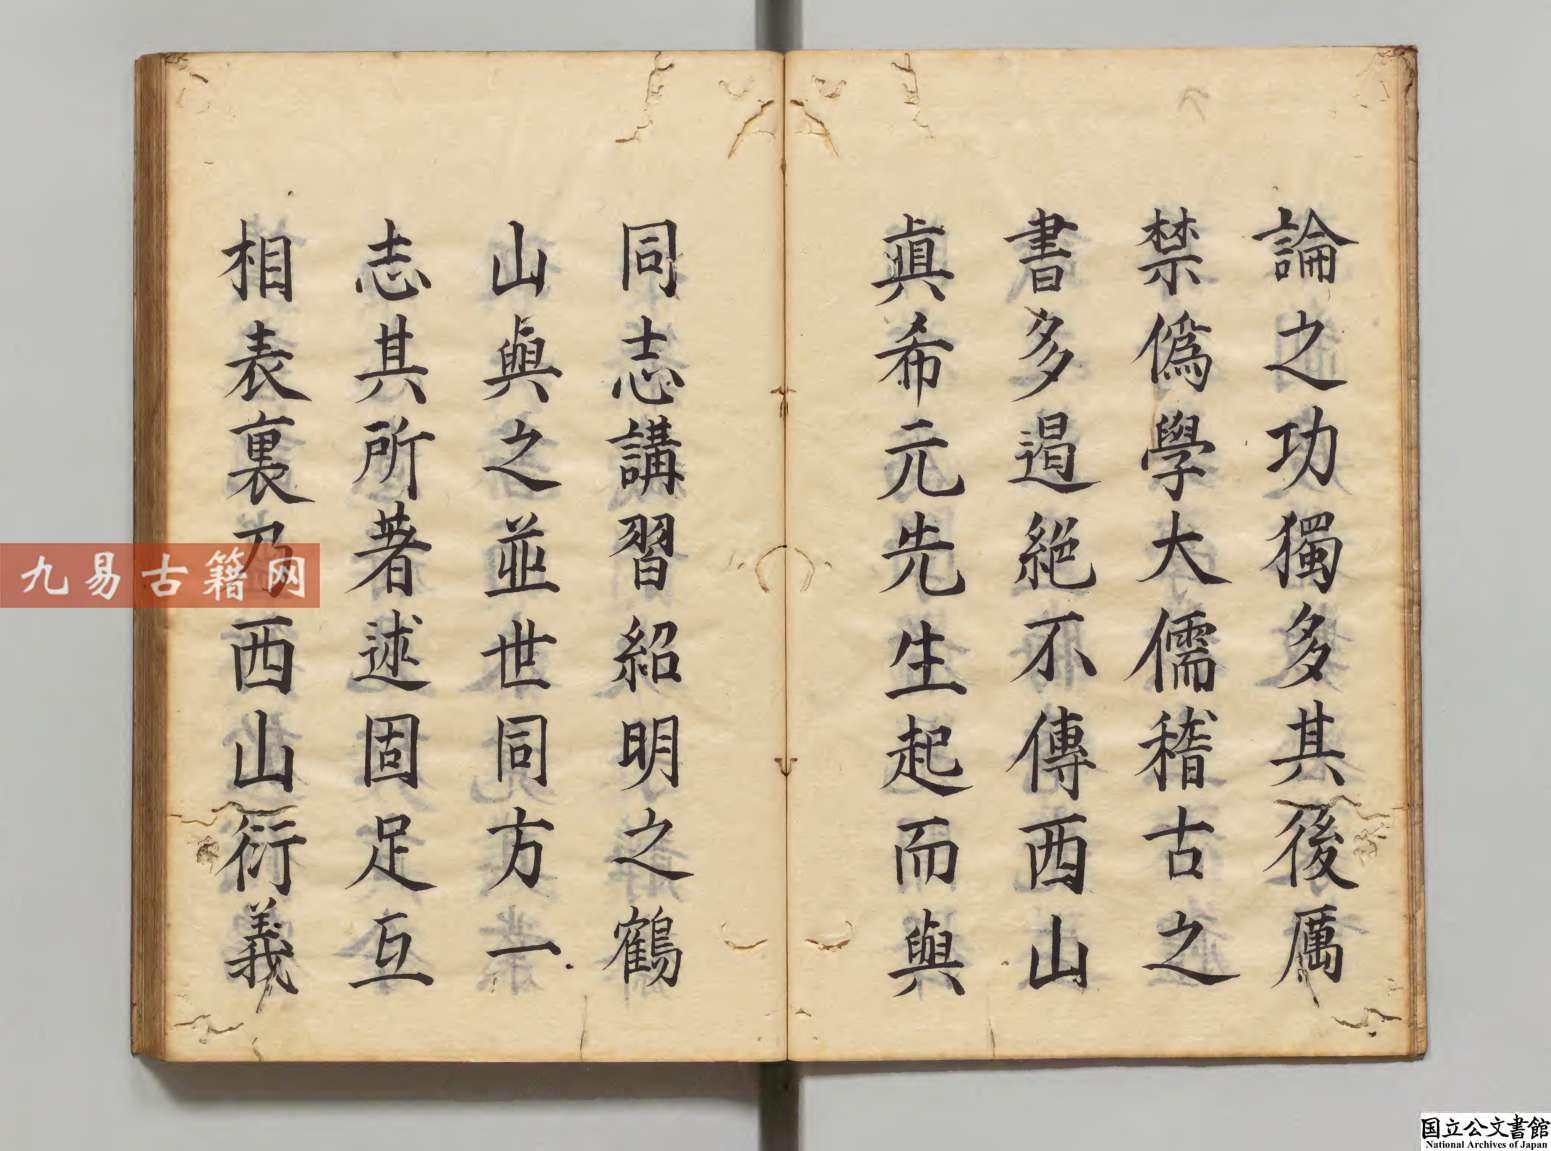 論之功獨多其後厲
禁偽學大儒稽古之
書多遏絕不傳西山
真希元先生起而與
同志講習紹明之鶴
山與之並世同方一
志其所著述固足互
相表裏乃西山衍義
九易古籍网
国立公文書館
National Archives of Japan